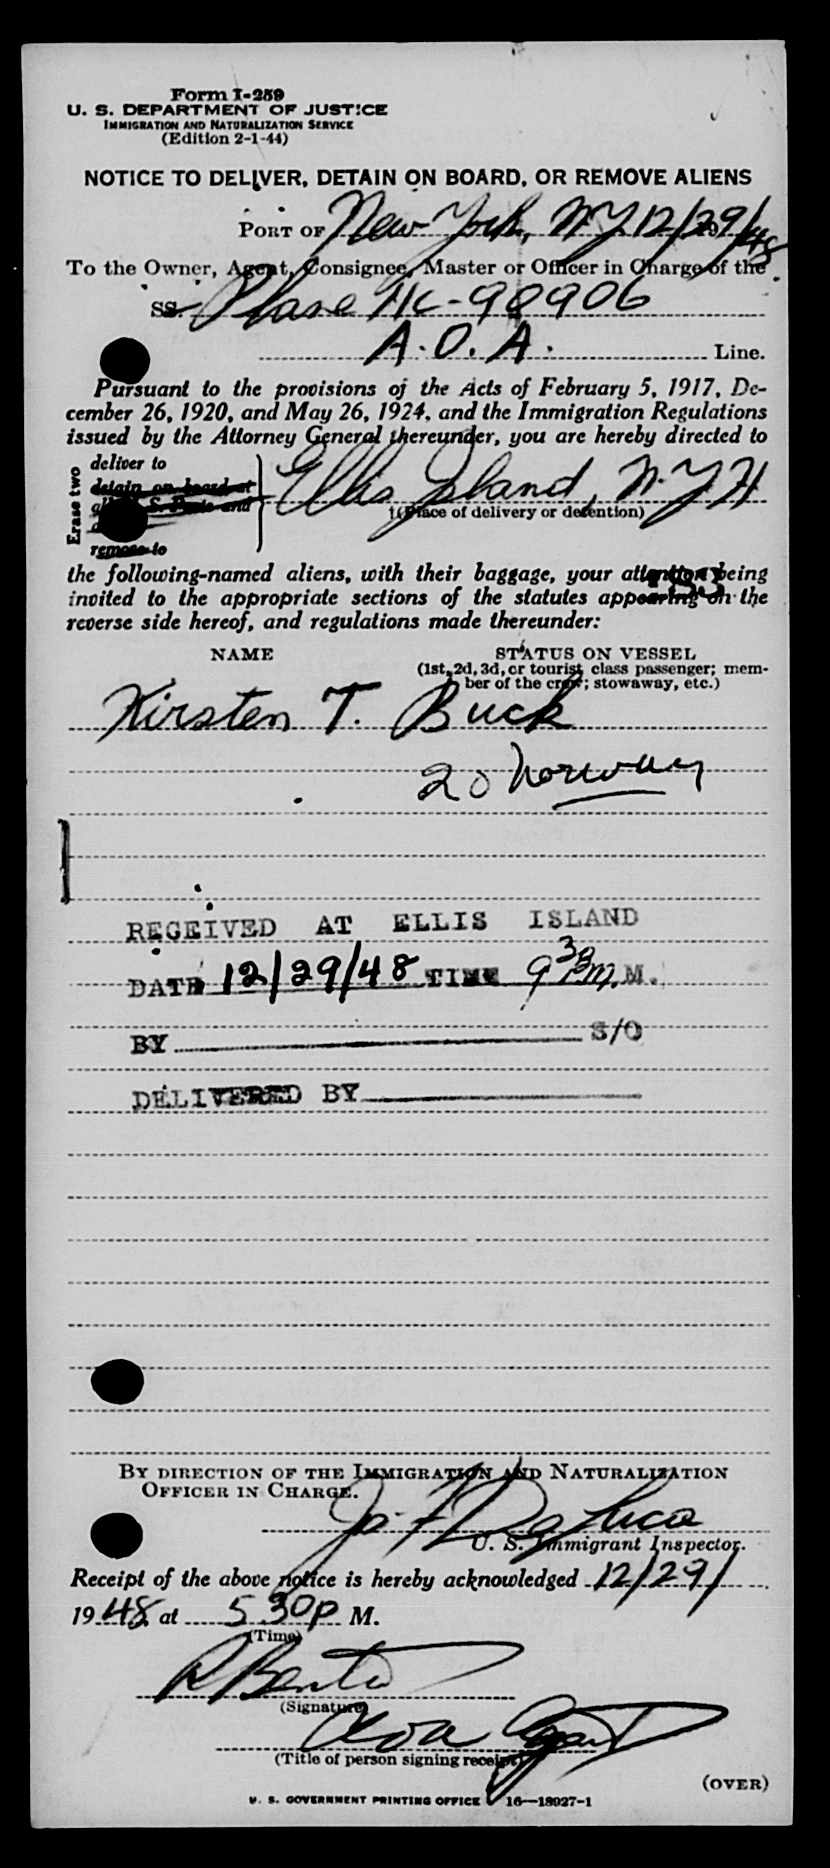 Form I-259
U. S. DEPARTMENT OF JUSTICE
IMMIGRATION AND NATURALIZATION SERVICE
(Edition 2-1-44)
NOTICE TO DELIVER, DETAIN ON BOARD, OR REMOVE ALIENS
PORT OF New York, NY 12/29/48
To the Owner, Agent, Consignee, Master or Officer in Charge of the
SS. Plane NC-90906
A.O.A. Line.
Pursuant to the provisions of the Acts of February 5, 1917, De-
cember 26, 1920, and May 26, 1924, and the Immigration Regulations
issued by the Attorney General thereunder, you are hereby directed to
Erase two
deliver to
detain on board at
S. and
remove to
Ellis Island, N.Y.H
(Place of delivery or detention)
the following-named aliens, with their baggage, your attention being
invited to the appropriate sections of the statutes appearing on the
reverse side hereof, and regulations made thereunder:
NAME STATUS ON VESSEL
(1st, 2d, 3d, or tourist class passenger; mem-
ber of the crew; stowaway, etc.)
Kirsten T. Buck
20 Norway
RECEIVED AT ELLIS ISLAND
DATE 12/29/48 TIME 9 M.
BY S/O
DELIVERED BY
BY DIRECTION OF THE IMMIGRATION AND NATURALIZATION
OFFICER IN CHARGE.
U. S. Immigrant Inspector.
Receipt of the above notice is hereby acknowledged 12/29/
1948 at 5 30 P M.
(Time)
(Signature)
AOA Agent
(Title of person signing receipt)
(OVER)
U. S. GOVERNMENT PRINTING OFFICE 16—18027-1